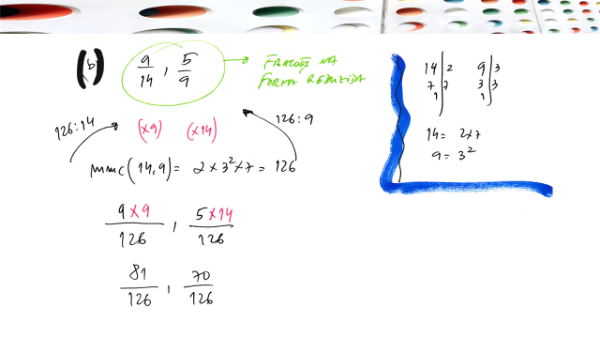 (b) 9/14 , 5/9 → FRAÇÕES NA
FORMA REDUZIDA
126:14 (×9) (×14) 126:9
mmc(14,9) = 2×3²×7 = 126
9×9/126 , 5×14/126
81/126 , 70/126
14|2 9|3
7|7 3|3
1| 1|
14 = 2×7
9 = 3²